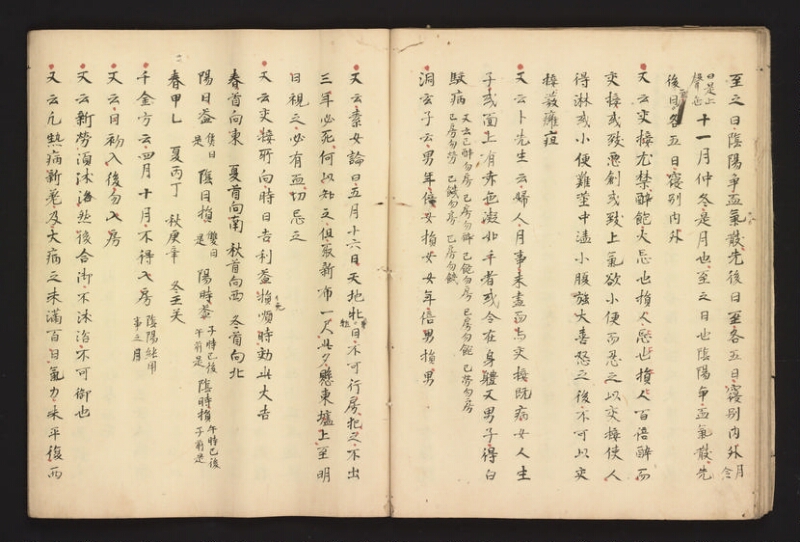 至之日陰陽爭血氣散先後日至各五日寢別内外月令
曰是上聲也十一月仲冬是月也至之日也陰陽爭血氣散先
後日各五日寢別内外
又云交接尤禁醉飽大忌也損人百倍醉而
交接或致悪創或致上氣欲小便而忍之以交接使人
得淋或小便難莖中澁小腹強大喜怒之後不可以交
接發癰疽
又云卜先生云婦人月事未盡而與交接既病女人生
子或面上有赤色凝如手者或令在身體又男子得白
駮病 又云已醉勿房已房勿醉已飽勿房已房勿飽已勞勿房
已房勿勞已飢勿房已房勿飢
洞玄子云男年倍女損女女年倍男損男
又云素女論曰五月十六日天地牝牡日不可行房犯之不出
三年必死何以知之但取新布一尺此夕懸東墻上至明
日視之必有血切忌之
又云交接所向時日吉利益損順時効此大吉
春首向東 夏首向南 秋首向西 冬首向北
陽日益 隻日是 陰日損 雙日是 陽時益 子時已後午前是 陰時損 午時已後子前是
春甲乙 夏丙丁 秋庚辛 冬壬癸
千金方云四月十月不得入房 陰陽純用事之月
又云日初入後勿入房
又云新勞須沐浴然後合御不沐浴不可御也
又云凡熱病新差及大病之未滿百日氣力未平復而